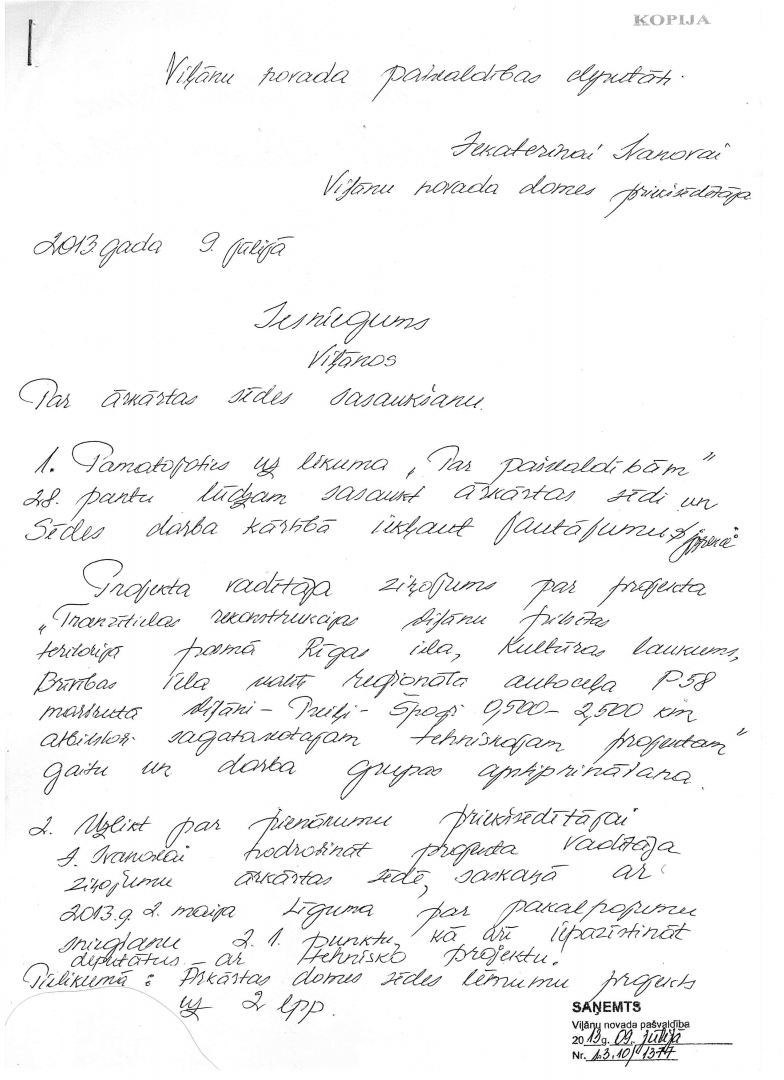 KOPIJA
Viļānu novada pašvaldības deputāti.
Jekaterinai Ivanovai
Viļānu novada domes priekšsēdētāja
2013. gada 9. jūlijā
Iesniegums
Viļānos
Par ārkārtas sēdes sasaukšanu.
1. Pamatojoties uz likuma „Par pašvaldībām"
28. pantu lūdzam sasaukt ārkārtas sēdi un
Sēdes darba kārtībā iekļaut jautājumu
Projekta vadītāja ziņojums par projekta
„Tranzītielas rekonstrukcijas Viļānu pilsētas
teritorijā posmā Rīgas iela, Kultūras laukums,
Brīvības iela valsts reģionālā autoceļa P58
maršrutā Viļāni – Preiļi – Špoģi 0,500 – 2,500 km
atbilstoši sagatavotajam tehniskajam projektam"
gaitu un darba grupas apstiprināšana.
2. Uzlikt par pienākumu priekšsēdētājai
J. Ivanovai nodrošināt projekta vadītāja
ziņojumu ārkārtas sēdē, saskaņā ar
2013.g. 2. maija Līguma par pakalpojumu
sniegšanu 2.1. punktu, kā arī iepazīstināt
deputātus ar tehnisko projektu.
Pielikumā: Ārkārtas domes sēdes lēmumu projekts
uz 2 lpp.
SAŅEMTS
Viļānu novada pašvaldība
2013 g. 09. jūlijā
Nr. 1.3.10/1377